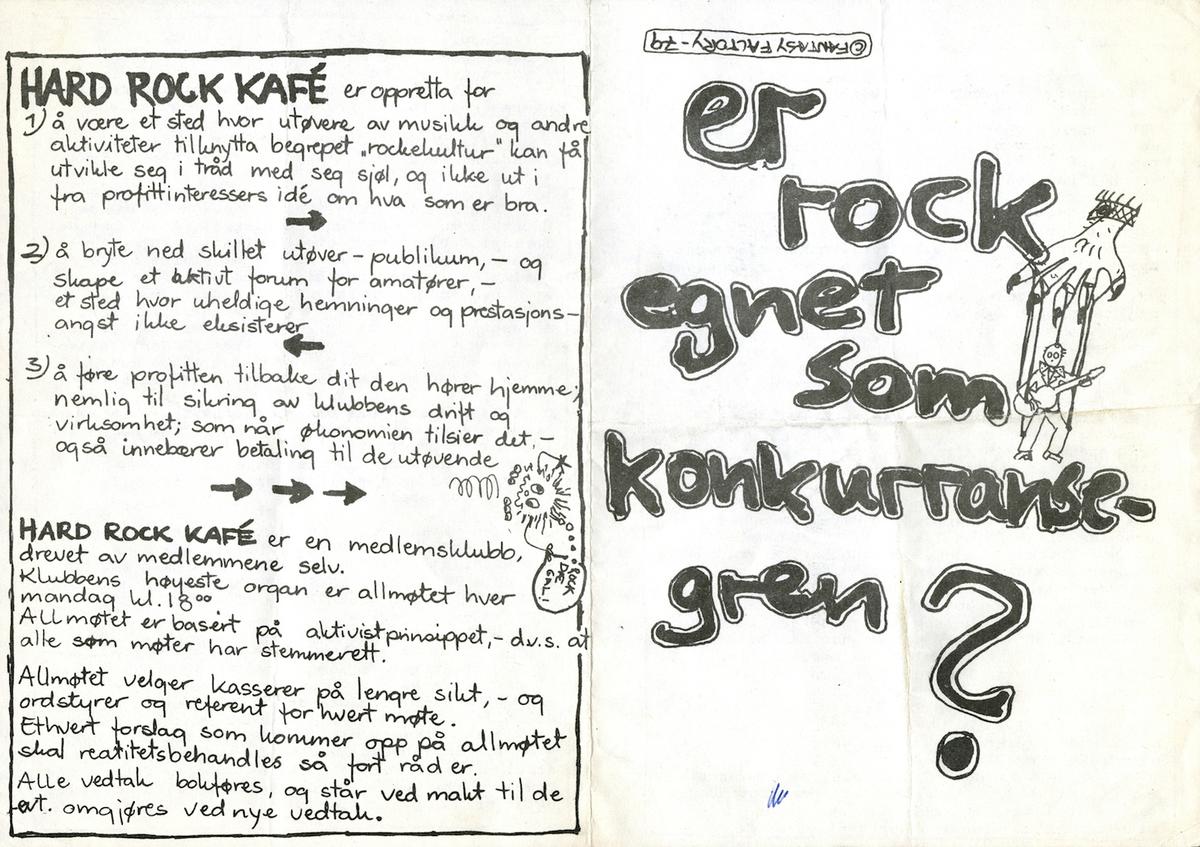 HARD ROCK KAFÉ er oppretta for
1) å være et sted hvor utøvere av musikk og andre
aktiviteter tilknytta begrepet „rockekultur" kan få
utvikle seg i tråd med seg sjøl, og ikke ut i
fra profittinteressers idé om hva som er bra.
2) å bryte ned skillet utøver – publikum, – og
skape et aktivt forum for amatører, –
et sted hvor uheldige hemninger og prestasjons–
angst ikke eksisterer
3) å føre profitten tilbake dit den hører hjemme;
nemlig til sikring av klubbens drift og
virksomhet; som når økonomien tilsier det, –
også innebærer betaling til de utøvende
ROCK
DÆ
GÆLI!
HARD ROCK KAFÉ er en medlemsklubb,
drevet av medlemmene selv.
Klubbens høyeste organ er allmøtet hver
mandag kl. 18⁰⁰.
Allmøtet er basert på aktivistprinsippet, – d.v.s. at
alle som møter har stemmerett.
Allmøtet velger kasserer på lengre sikt, – og
ordstyrer og referent for hvert møte.
Ethvert forslag som kommer opp på allmøtet
skal realitetsbehandles så fort råd er.
Alle vedtak bokføres, og står ved makt til de
evt. omgjøres ved nye vedtak.
© FANTASY FACTORY - 79
er
rock
egnet
som
konkurranse-
gren ?